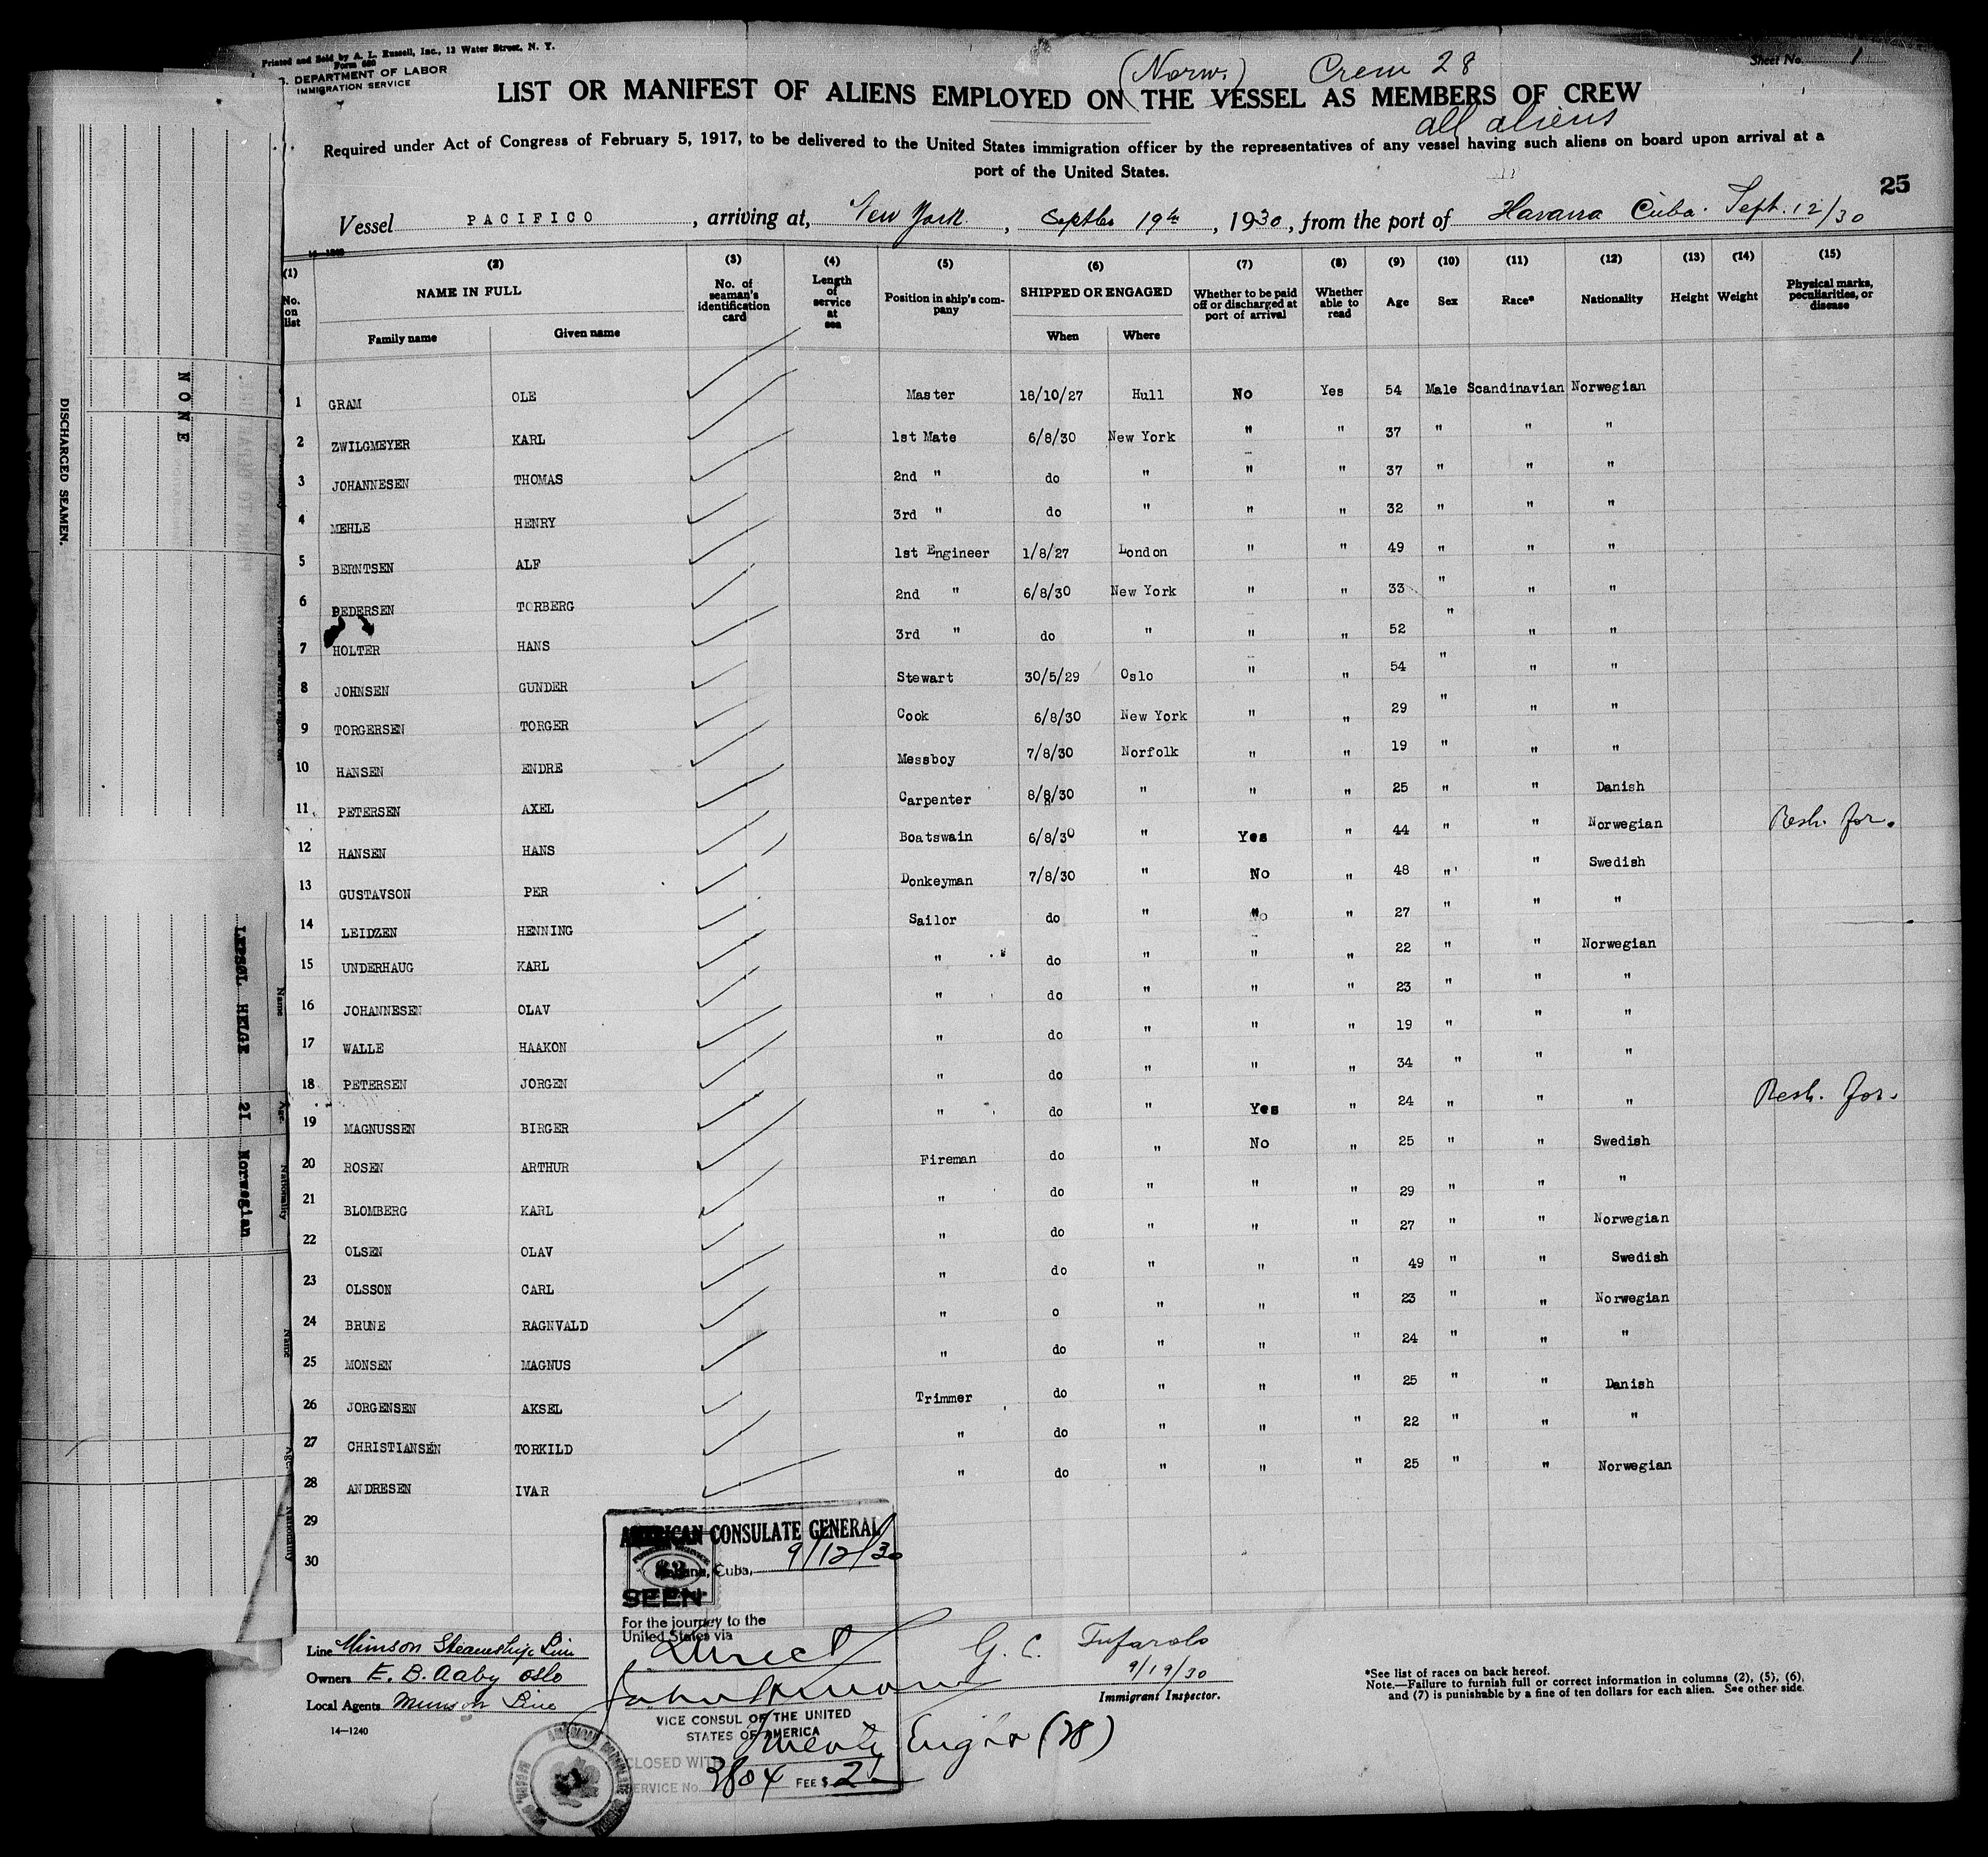 Printed and Sold by A. L. Russell, Inc., 13 Water Street, N. Y.
Form 680
DEPARTMENT OF LABOR
IMMIGRATION SERVICE
Sheet No. 1
(Norw.) Crew 28
LIST OR MANIFEST OF ALIENS EMPLOYED ON THE VESSEL AS MEMBERS OF CREW
all aliens
Required under Act of Congress of February 5, 1917, to be delivered to the United States immigration officer by the representatives of any vessel having such aliens on board upon arrival at a
port of the United States.
25
Vessel PACIFICO, arriving at, New York, Septbr 19th, 1930, from the port of Havana Cuba. Sept. 12/30
(1) (2) (3) (4) (5) (6) (7) (8) (9) (10) (11) (12) (13) (14) (15)
No. on list NAME IN FULL No. of seaman's identification card Length of service at sea Position in ship's company SHIPPED OR ENGAGED Whether to be paid off or discharged at port of arrival Whether able to read Age Sex Race* Nationality Height Weight Physical marks, peculiarities, or disease
Family name Given name When Where
1 GRAM OLE Master 18/10/27 Hull No Yes 54 Male Scandinavian Norwegian
2 ZWILGMEYER KARL 1st Mate 6/8/30 New York " " 37 " " "
3 JOHANNESEN THOMAS 2nd " do " " " 37 " " "
4 MEHLE HENRY 3rd " do " " " 32 " " "
5 BERNTSEN ALF 1st Engineer 1/8/27 London " " 49 " " "
6 PEDERSEN TORBERG 2nd " 6/8/30 New York " " 33 " " "
7 HOLTER HANS 3rd " do " " " 52 " " "
8 JOHNSEN GUNDER Stewart 30/5/29 Oslo " " 54 " " "
9 TORGERSEN TORGER Cook 6/8/30 New York " " 29 " " "
10 HANSEN ENDRE Messboy 7/8/30 Norfolk " " 19 " " "
11 PETERSEN AXEL Carpenter 8/8/30 " " " 25 " " Danish
12 HANSEN HANS Boatswain 6/8/30 " Yes " 44 " " Norwegian Resh. for.
13 GUSTAVSON PER Donkeyman 7/8/30 " No " 48 " " Swedish
14 LEIDZEN HENNING Sailor do " " " 27 " " "
15 UNDERHAUG KARL " do " " " 22 " " Norwegian
16 JOHANNESEN OLAV " do " " " 23 " " "
17 WALLE HAAKON " do " " " 19 " " "
18 PETERSEN JORGEN " do " " " 34 " " "
19 MAGNUSSEN BIRGER " do " Yes " 24 " " " Resh. for.
20 ROSEN ARTHUR Fireman do " No " 25 " " Swedish
21 BLOMBERG KARL " do " " " 29 " " "
22 OLSEN OLAV " do " " " 27 " " Norwegian
23 OLSSON CARL " do " " " 49 " " Swedish
24 BRUNE RAGNVALD " o " " " 23 " " Norwegian
25 MONSEN MAGNUS " do " " " 24 " " "
26 JORGENSEN AKSEL Trimmer do " " " 25 " " Danish
27 CHRISTIANSEN TORKILD " do " " " 22 " " "
28 ANDRESEN IVAR " do " " " 25 " " Norwegian
29
30
AMERICAN CONSULATE GENERAL
Cuba, 9/12/30
SEEN
For the journey to the
United States via
Direct
VICE CONSUL OF THE UNITED
STATES OF AMERICA
Twenty Eight (28)
CLOSED WITH
SERVICE No. 3804 FEE $ 2
Line Munson Steamship Line
Owners E. B. Aaby Oslo
Local Agents Munson Line
14—1240
G. C. Tufarolo
9/19/30
Immigrant Inspector.
*See list of races on back hereof.
Note.—Failure to furnish full or correct information in columns (2), (5), (6),
and (7) is punishable by a fine of ten dollars for each alien. See other side.
DISCHARGED SEAMEN.
NONE
LEPSØL HELGE 21 Norwegian
Name
Age.
Nationality
Name
Age.
Nationality